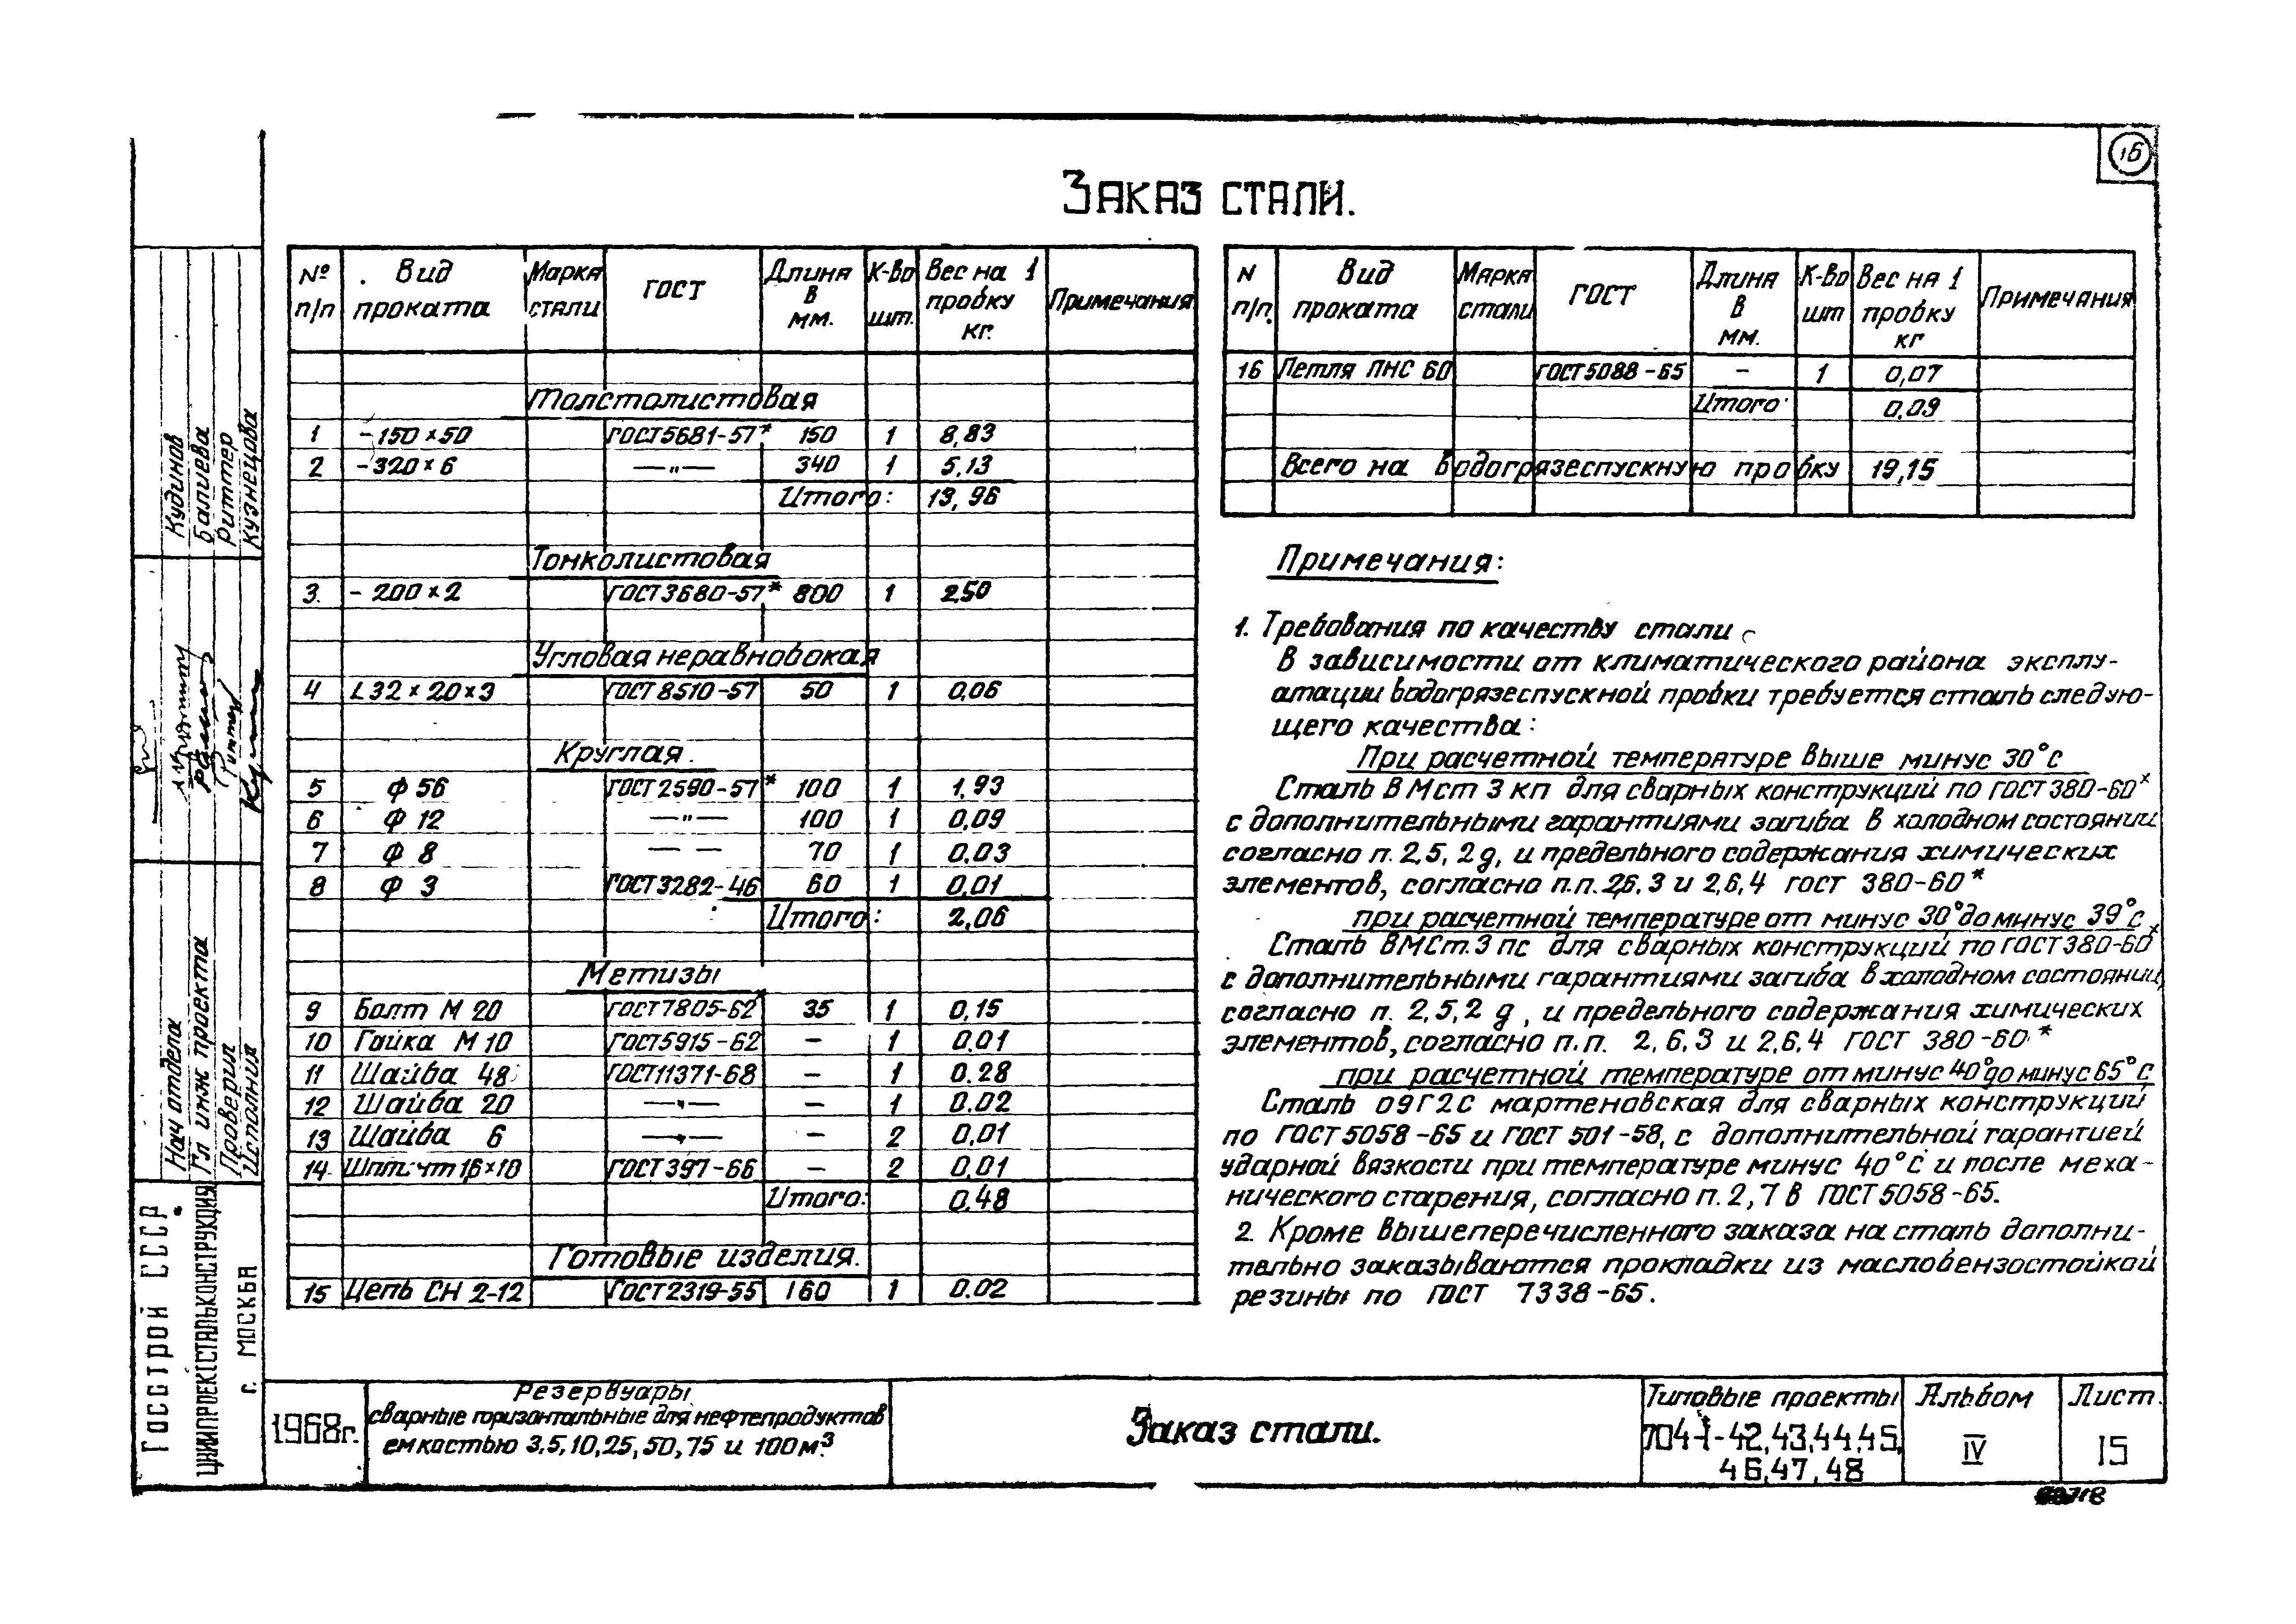 16
Заказ стали.
№ п/п Вид проката Марка стали ГОСТ Длина в мм. К-во шт. Вес на 1 пробку кг. Примечания
Толстолистовая
1 -150×50 ГОСТ5681-57* 150 1 8,83
2 -320×6 —"— 340 1 5,13
Итого: 13,96
Тонколистовая
3. -200×2 ГОСТ3680-57* 800 1 2,50
Угловая неравнобокая
4 L32×20×3 ГОСТ8510-57 50 1 0,06
Круглая.
5 Ф56 ГОСТ2590-57* 100 1 1,93
6 Ф12 —"— 100 1 0,09
7 Ф8 — — 70 1 0,03
8 Ф3 ГОСТ3282-46 60 1 0,01
Итого: 2,06
Метизы
9 Болт М20 ГОСТ7805-62* 35 1 0,15
10 Гайка М10 ГОСТ5915-62 – 1 0,01
11 Шайба 48 ГОСТ11371-68 – 1 0.28
12 Шайба 20 —"— – 1 0.02
13 Шайба 6 —"— – 2 0,01
14 Шпл:чт16×10 ГОСТ397-66 – 2 0,01
Итого: 0,48
Готовые изделия.
15 Цепь СН 2-12 ГОСТ2319-55 160 1 0.02
N п/п. Вид проката Марка стали ГОСТ Длина в мм. К-во шт Вес на 1 пробку кг Примечания
16 Петля ПНС 60 ГОСТ5088-65 – 1 0,07
Итого: 0,09
Всего на водогрязеспускную пробку 19,15
Примечания:
1. Требования по качеству стали
В зависимости от климатического района эксплу-
атации водогрязеспускной пробки требуется сталь следую-
щего качества:
При расчетной температуре выше минус 30°с
Сталь ВМст 3 кп для сварных конструкций по ГОСТ 380-60*
с дополнительными гарантиями загиба в холодном состоянии
согласно п. 2,5, 2д, и предельного содержания химических
элементов, согласно п.п. 2,6,3 и 2,6,4 гост 380-60*
при расчетной температуре от минус 30° до минус 39°с
Сталь ВМСт.3 пс для сварных конструкций по гост 380-60*
с дополнительными гарантиями загиба в холодном состоянии,
согласно п. 2,5,2 д, и предельного содержания химических
элементов, согласно п.п. 2,6,3 и 2,6,4 гост 380-60*
при расчетной температуре от минус 40° до минус 65°с
Сталь 09Г2С мартеновская для сварных конструкций
по ГОСТ5058-65 и ГОСТ 501-58, с дополнительной гарантией
ударной вязкости при температуре минус 40°С и после меха-
нического старения, согласно п. 2,7в ГОСТ5058-65.
2. Кроме вышеперечисленного заказа на сталь дополни-
тельно заказываются прокладки из маслобензостойкой
резины по ГОСТ 7338-65.
Кудинов
Балиева
Риттер
Кузнецова
Нач отдела
Гл инж проекта
Проверил
Исполнил
Госстрой СССР
ЦНИИПРОЕКТСТАЛЬКОНСТРУКЦИЯ
г. МОСКВА
1968г.
Резервуары
сварные горизонтальные для нефтепродуктов
емкостью 3,5,10,25,50,75 и 100м³
Заказ стали.
Типовые проекты
704-1-42,43,44,45,
46,47,48
Альбом
IV
Лист.
15